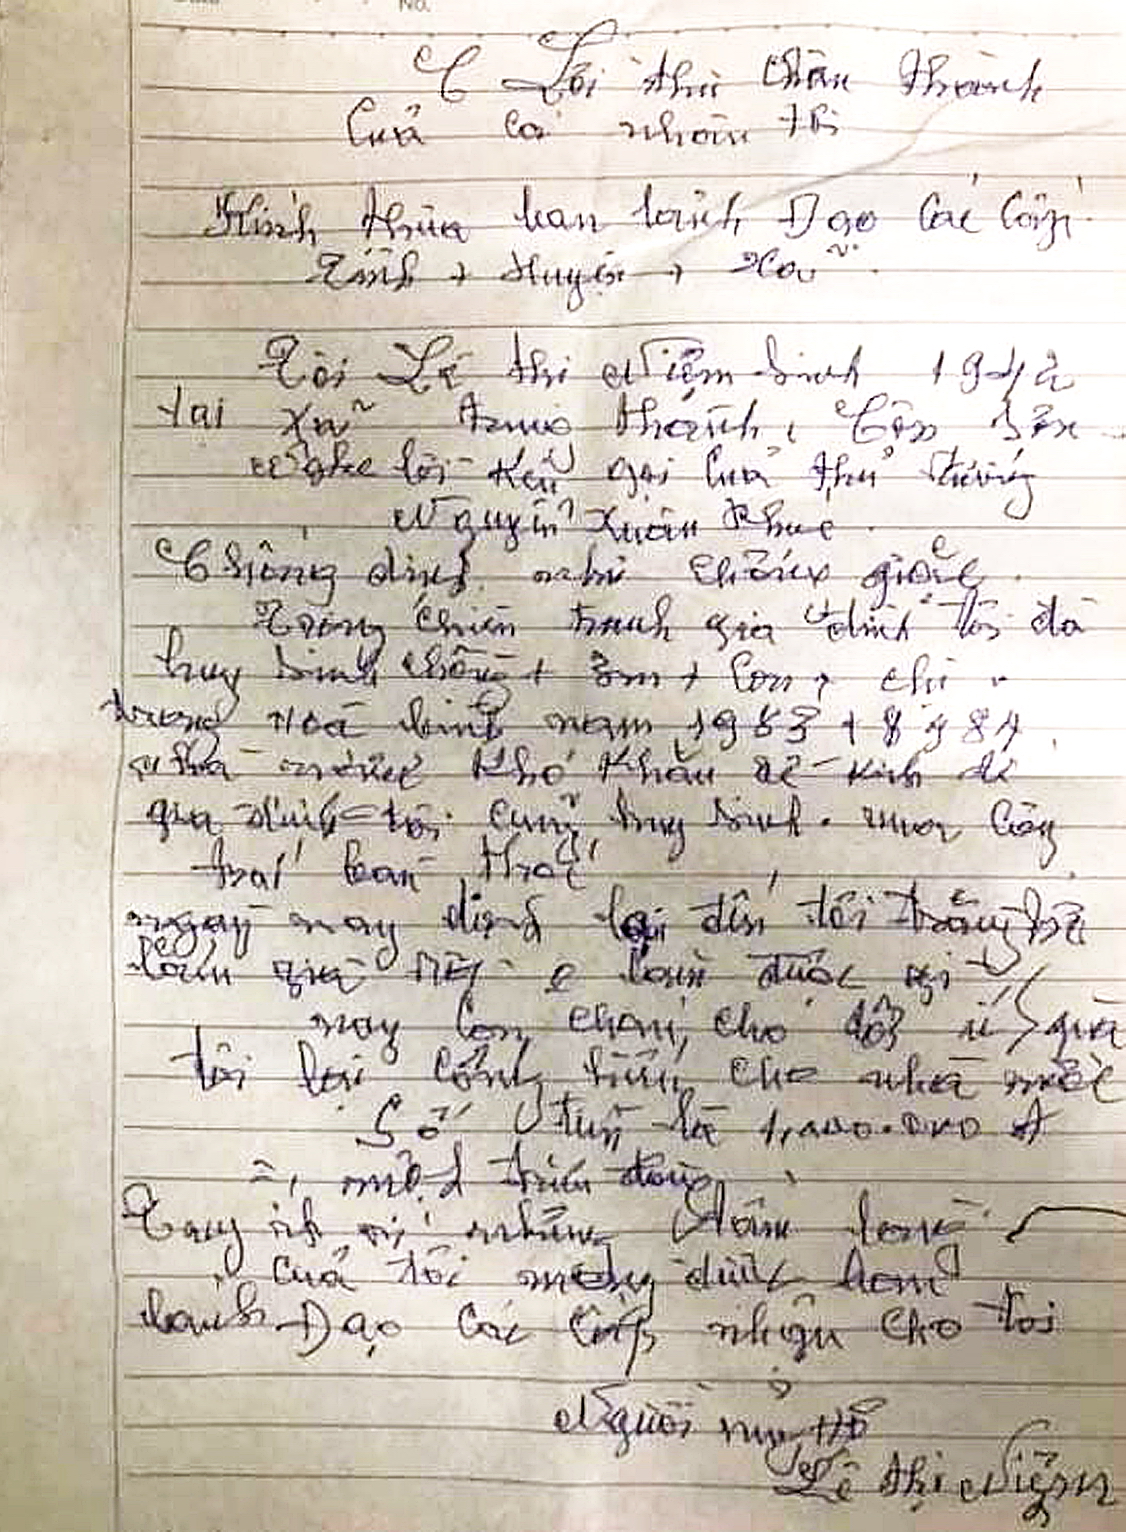 Lời thư chân thành
Của cá nhân tôi
Kính thưa ban lãnh Đạo Các Cấp
Tỉnh + Huyện + Xã
Tôi Lê thị Niệm Sinh 1942
tại xã trung thành, 
Nghe lời Kêu gọi Của thủ tướng
Nguyễn Xuân Phúc
Chống dịch như chống giặc
Trong chiến tranh gia đình tôi đã
huy sinh chồng + Em + Con + chị
trong Hoà bình năm 1983 + 8 984
nhà nước Khó Khăn về Kinh tế
gia đình tôi cũng huy sinh mua Công
trái 
ngày nay dịch lại đến tôi 
già rồi làm được gì
nay Con cháu cho đỡ ít quà
tôi lại Cống hiến cho nhà nước
Số tiền là 1,000.000 đ
=, một triệu đồng
Tuy ít ỏi nhưng tấm lòng
Của tôi mong được ban
lãnh Đạo Các Cấp nhận cho tôi
Người ủng Hộ
Lê thị Niệm